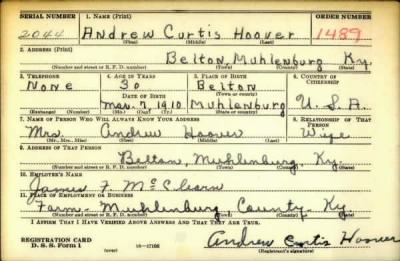 SERIAL NUMBER 1. NAME (Print) ORDER NUMBER
2044 Andrew Curtis Hoover 1489
(First) (Middle) (Last)
2. ADDRESS (Print)
Belton, Muhlenburg Ky.
(Number and street or R. F. D. number) (Town) (County) (State)
3. TELEPHONE 4. AGE IN YEARS 5. PLACE OF BIRTH 6. COUNTRY OF CITIZENSHIP
None 30 Belton
DATE OF BIRTH (Town or county)
Mar. 7 1910 Muhlenburg U. S. A.
(Exchange) (Number) (Mo.) (Day) (Yr.) (State or country)
7. NAME OF PERSON WHO WILL ALWAYS KNOW YOUR ADDRESS 8. RELATIONSHIP OF THAT PERSON
Mrs. Andrew Hoover Wife
(Mr., Mrs., Miss) (First) (Middle) (Last)
9. ADDRESS OF THAT PERSON
Belton, Muhlenburg, Ky.
(Number and street or R. F. D. number) (Town) (County) (State)
10. EMPLOYER'S NAME
James F. McClearn
11. PLACE OF EMPLOYMENT OR BUSINESS
Farm- Muhlenburg County- Ky
(Number and street or R. F. D. number) (Town) (County) (State)
I AFFIRM THAT I HAVE VERIFIED ABOVE ANSWERS AND THAT THEY ARE TRUE.
REGISTRATION CARD
D. S. S. Form 1 (over) 16—17105 Andrew Curtis Hoover
(Registrant's signature)